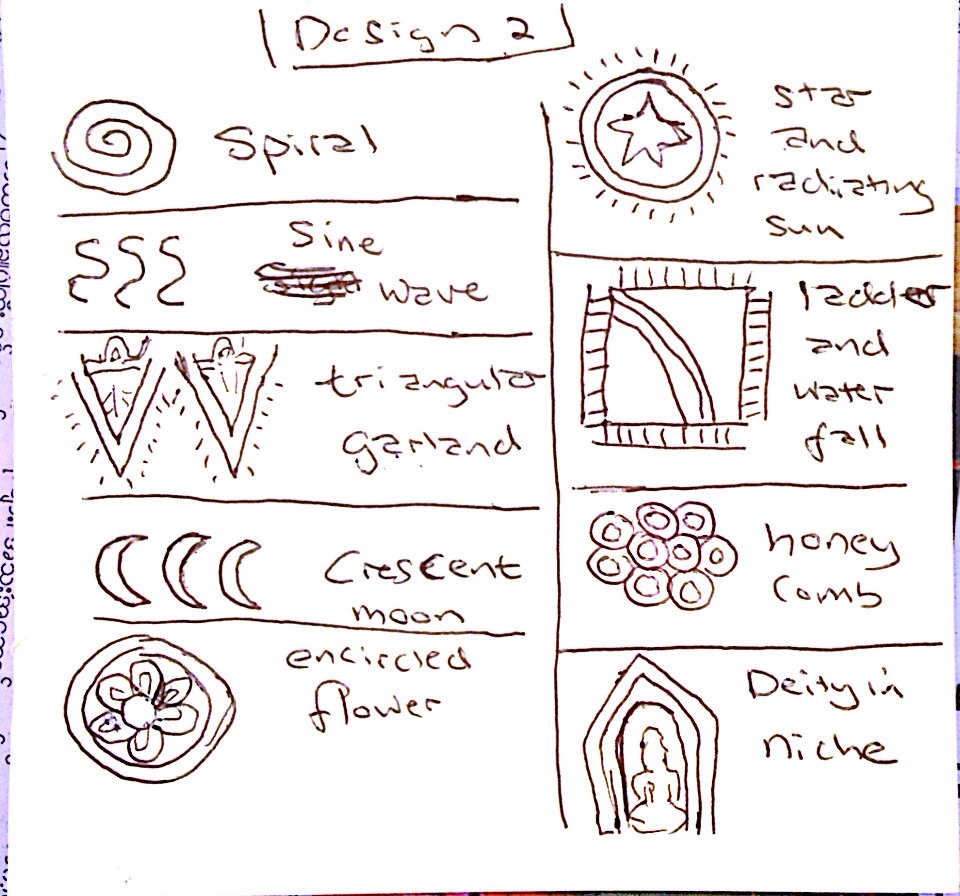 Design 2
Spiral
Sine
wave
triangular
garland
Crescent
moon
encircled
flower
star
and
radiating
sun
ladder
and
water
fall
honey
comb
Deity in
niche